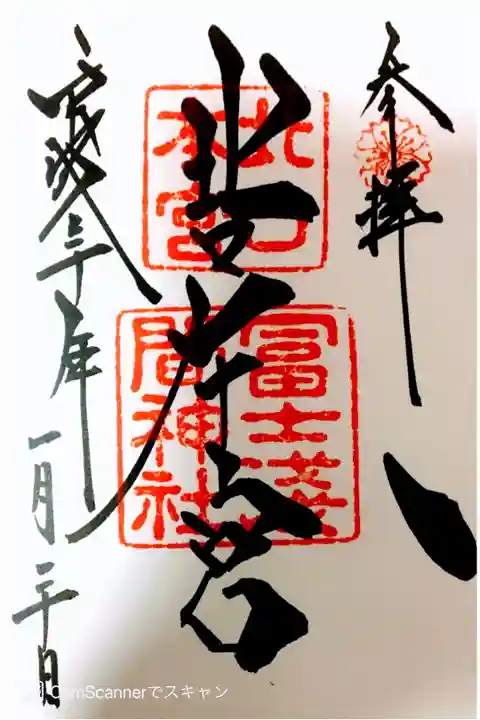 参拝
北口本宮
北口
本宮
冨士浅
間神社
平成三十年一月二十日
CamScannerでスキャン